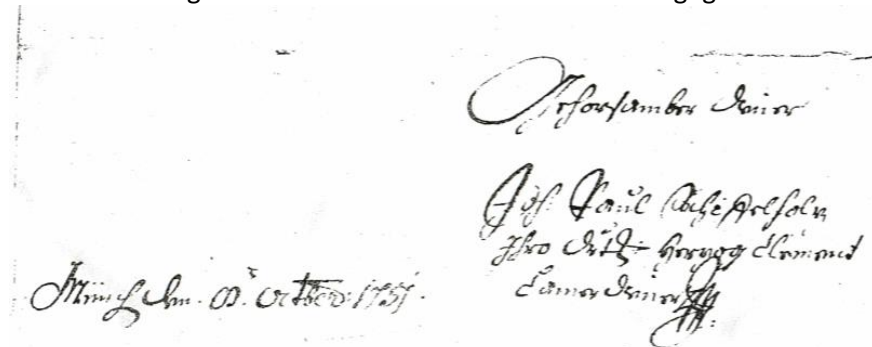 Gehorsamber diener
Joh: Paul Schiffelholz
Ihro Herzog Clement
Camerdiener
Münch den 8. octob: 1751.